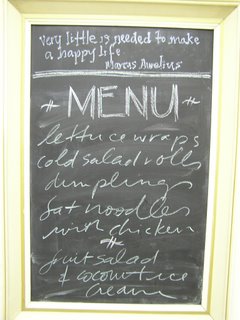 very little is needed to make
a happy life
Marcus Aurelius
MENU
lettuce wraps
cold salad rolls
dumplings
fat noodles
with chicken
fruit salad
& coconut rice
cream